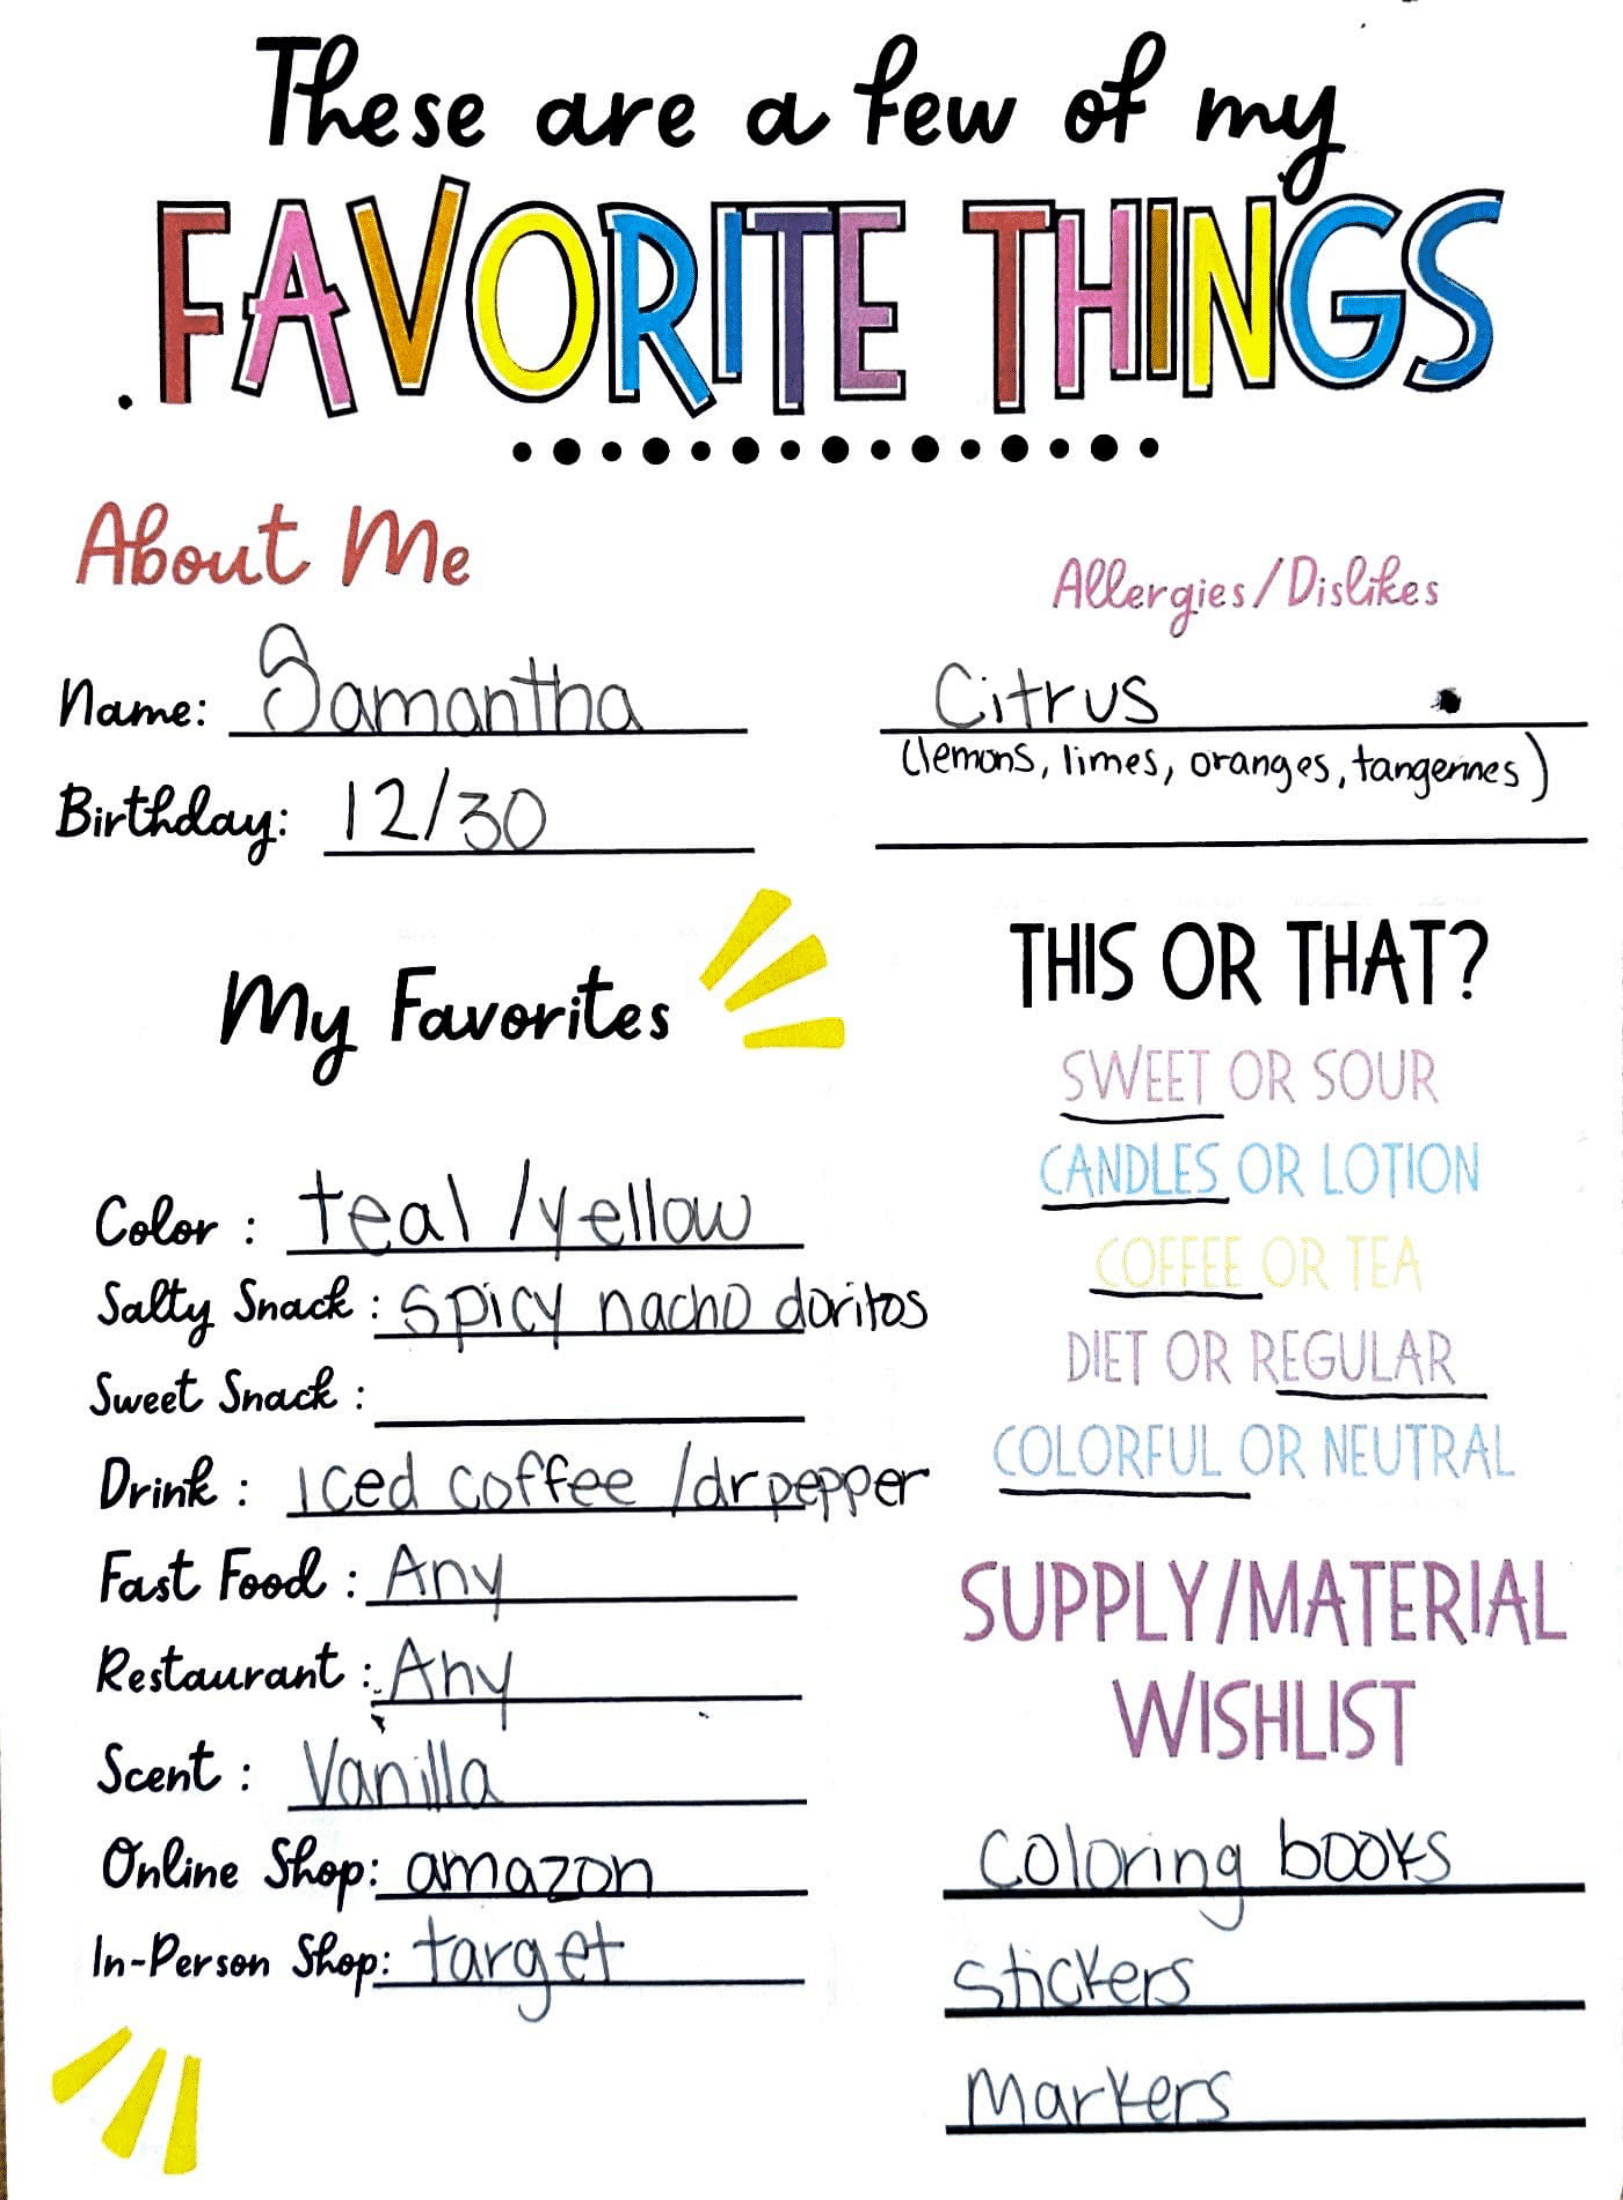 These are a few of my
FAVORITE THINGS
About Me
Name: Samantha
Birthday: 12/30
Allergies/Dislikes
Citrus
(lemons, limes, oranges, tangerines)
My Favorites
Color : teal /yellow
Salty Snack : spicy nacho doritos
Sweet Snack :
Drink : iced coffee /drpepper
Fast Food : Any
Restaurant : Any
Scent : Vanilla
Online Shop: amazon
In-Person Shop: target
THIS OR THAT?
SWEET OR SOUR
CANDLES OR LOTION
COFFEE OR TEA
DIET OR REGULAR
COLORFUL OR NEUTRAL
SUPPLY/MATERIAL
WISHLIST
Coloring books
stickers
markers